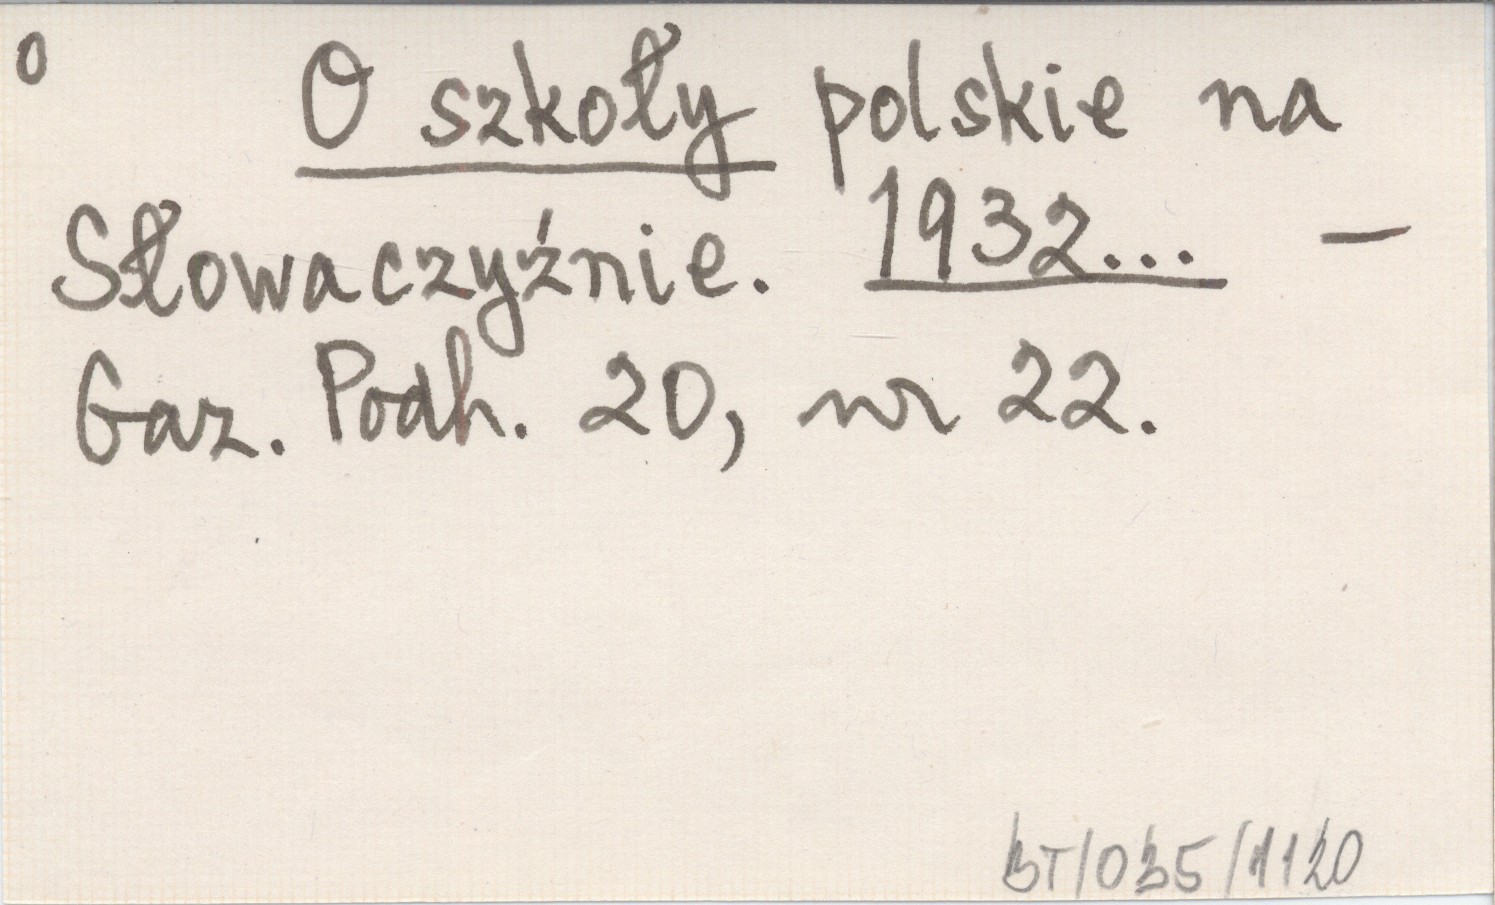 O
O szkoły polskie na
Słowaczyźnie. 1932... —
Gaz. Podh. 20, nr 22.
BT/035/1120